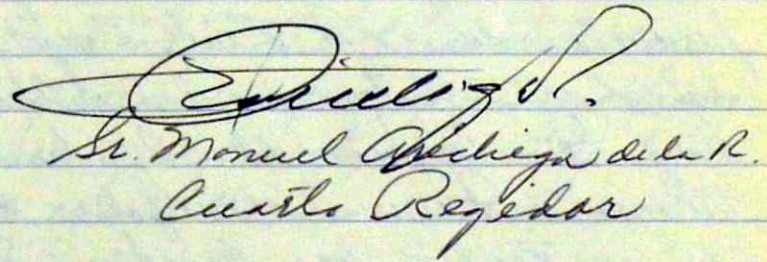 Sr. Manuel Arechiga de la R.
Cuarto Regidor